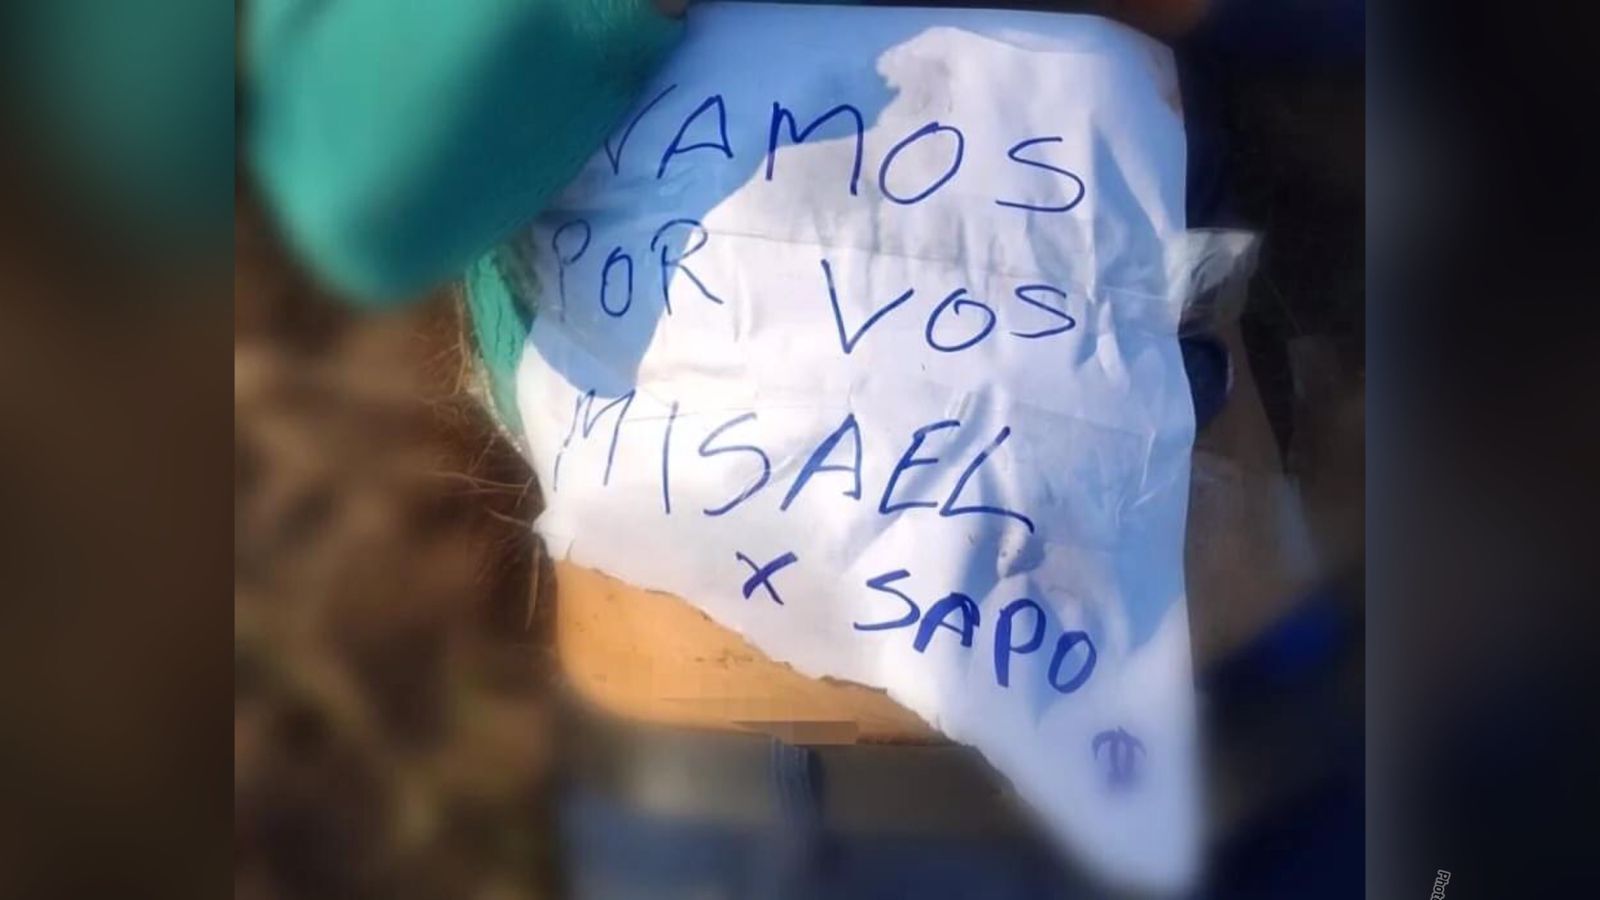 VAMOS
POR VOS
MISAEL
X SAPO
Phot